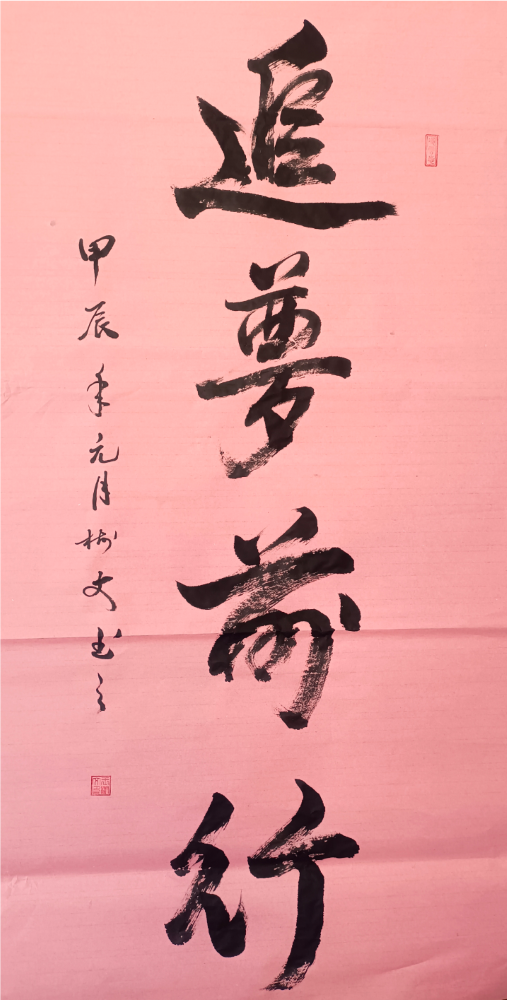 追夢前行
甲辰年元月树文书之